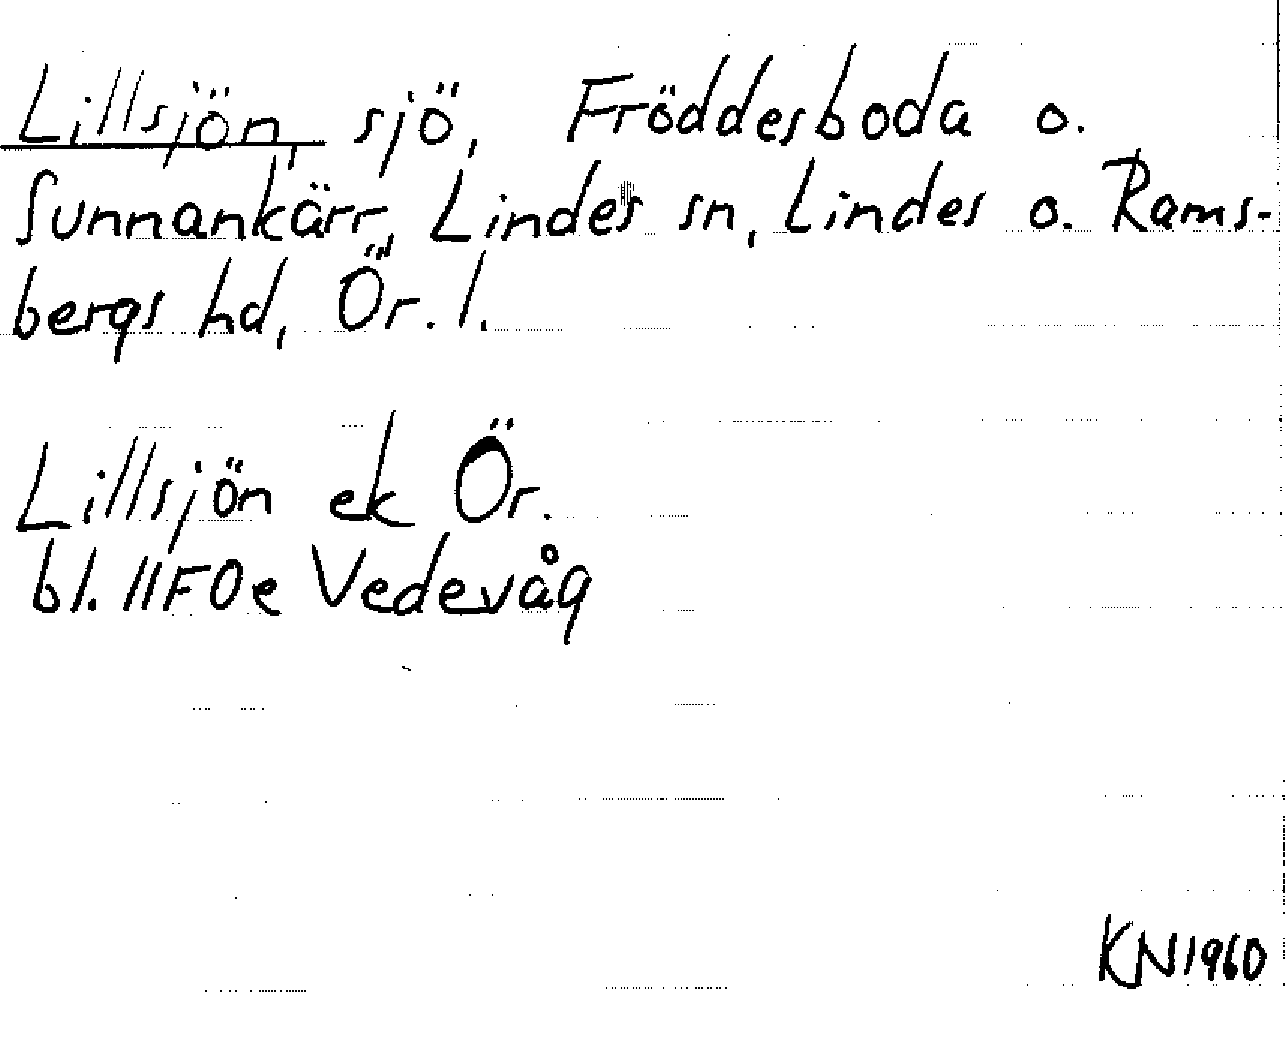 Lillsjön, sjö, Fröddesboda o.
Sunnankärr, Lindes sn, Lindes o. Rams-
bergs hd, Ör. l.
Lillsjön ek Ör.
bl. 11F0e Vedevåg
KN1960